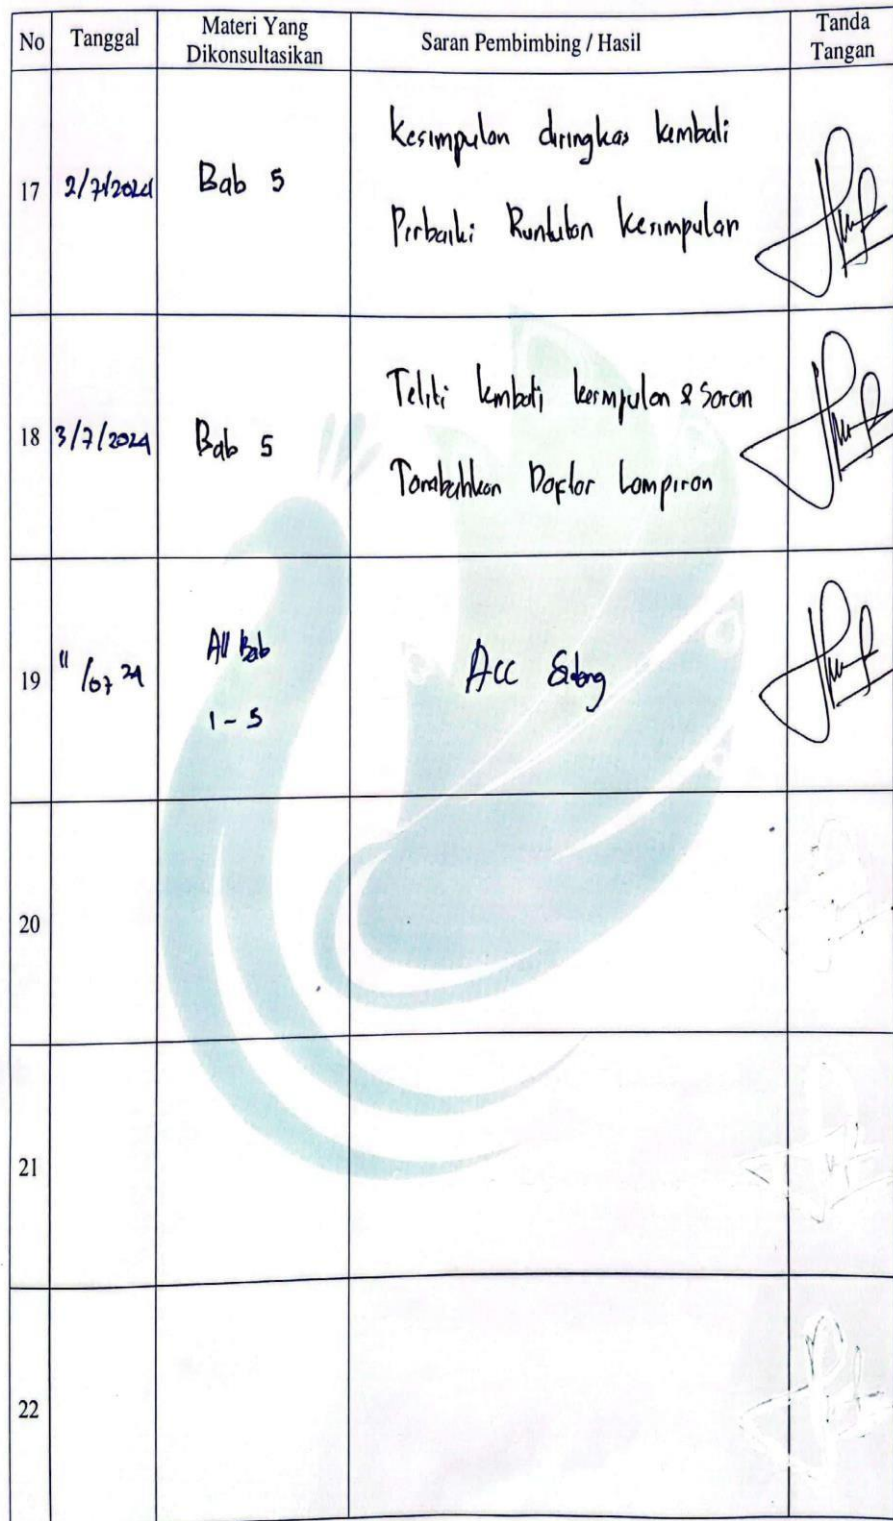 No Tanggal Materi Yang Dikonsultasikan Saran Pembimbing / Hasil Tanda Tangan
17 2/7/2024 Bab 5 Kesimpulan diringkas kembali
Perbaiki Runtutan Kesimpulan
18 3/7/2024 Bab 5 Teliti kembali kesimpulan & Saran
Tambahkan Daftar Lampiran
19 11/07 24 All Bab
1 - 5
Acc Sidang
20
21
22